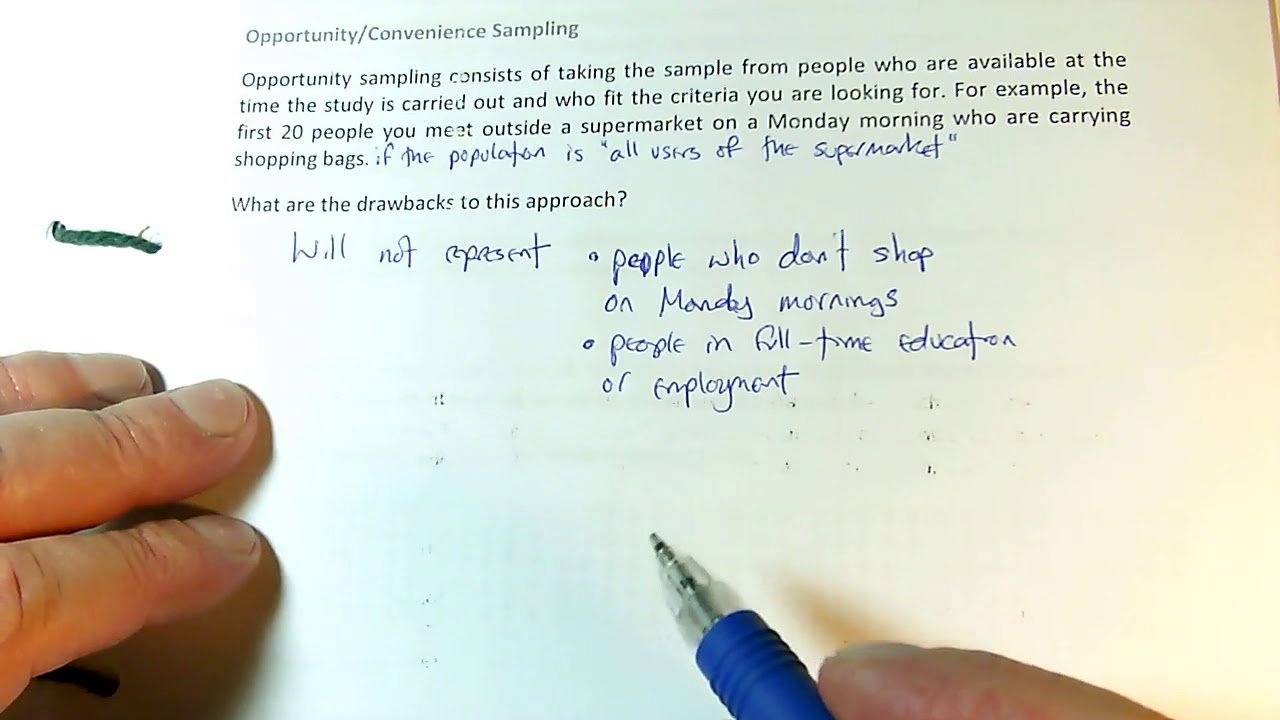 Opportunity/Convenience Sampling
Opportunity sampling consists of taking the sample from people who are available at the
time the study is carried out and who fit the criteria you are looking for. For example, the
first 20 people you meet outside a supermarket on a Monday morning who are carrying
shopping bags. if the populaton is "all users of the supermarket"
What are the drawbacks to this approach?
Will not represent • people who don't shop
on Monday mornings
• people in full-time education
or employment